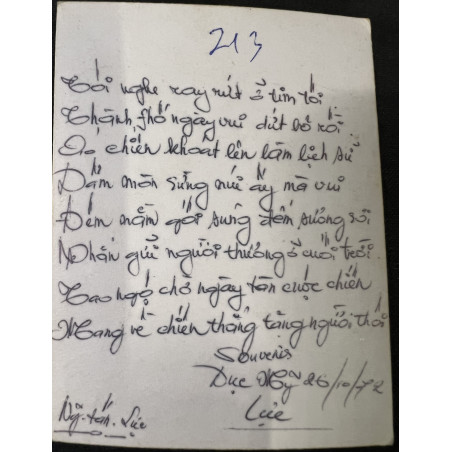 213
Tôi nghe ray rứt ở tim tôi
Thành phố ngày vui dứt bỏ rồi
Áo chiến khoát lên làm lịch sử
Dặm mòn súng núi ấy mà vui
Đêm nằm gối súng đếm sương rơi
Nhắn gửi người thương ở cuối trời
Tao ngộ chờ ngày tàn cuộc chiến
Mang về chiến thắng tặng người thôi
Souvenir
Dục Mỹ 26/10/72
Lực
Ng. tấn. Lực